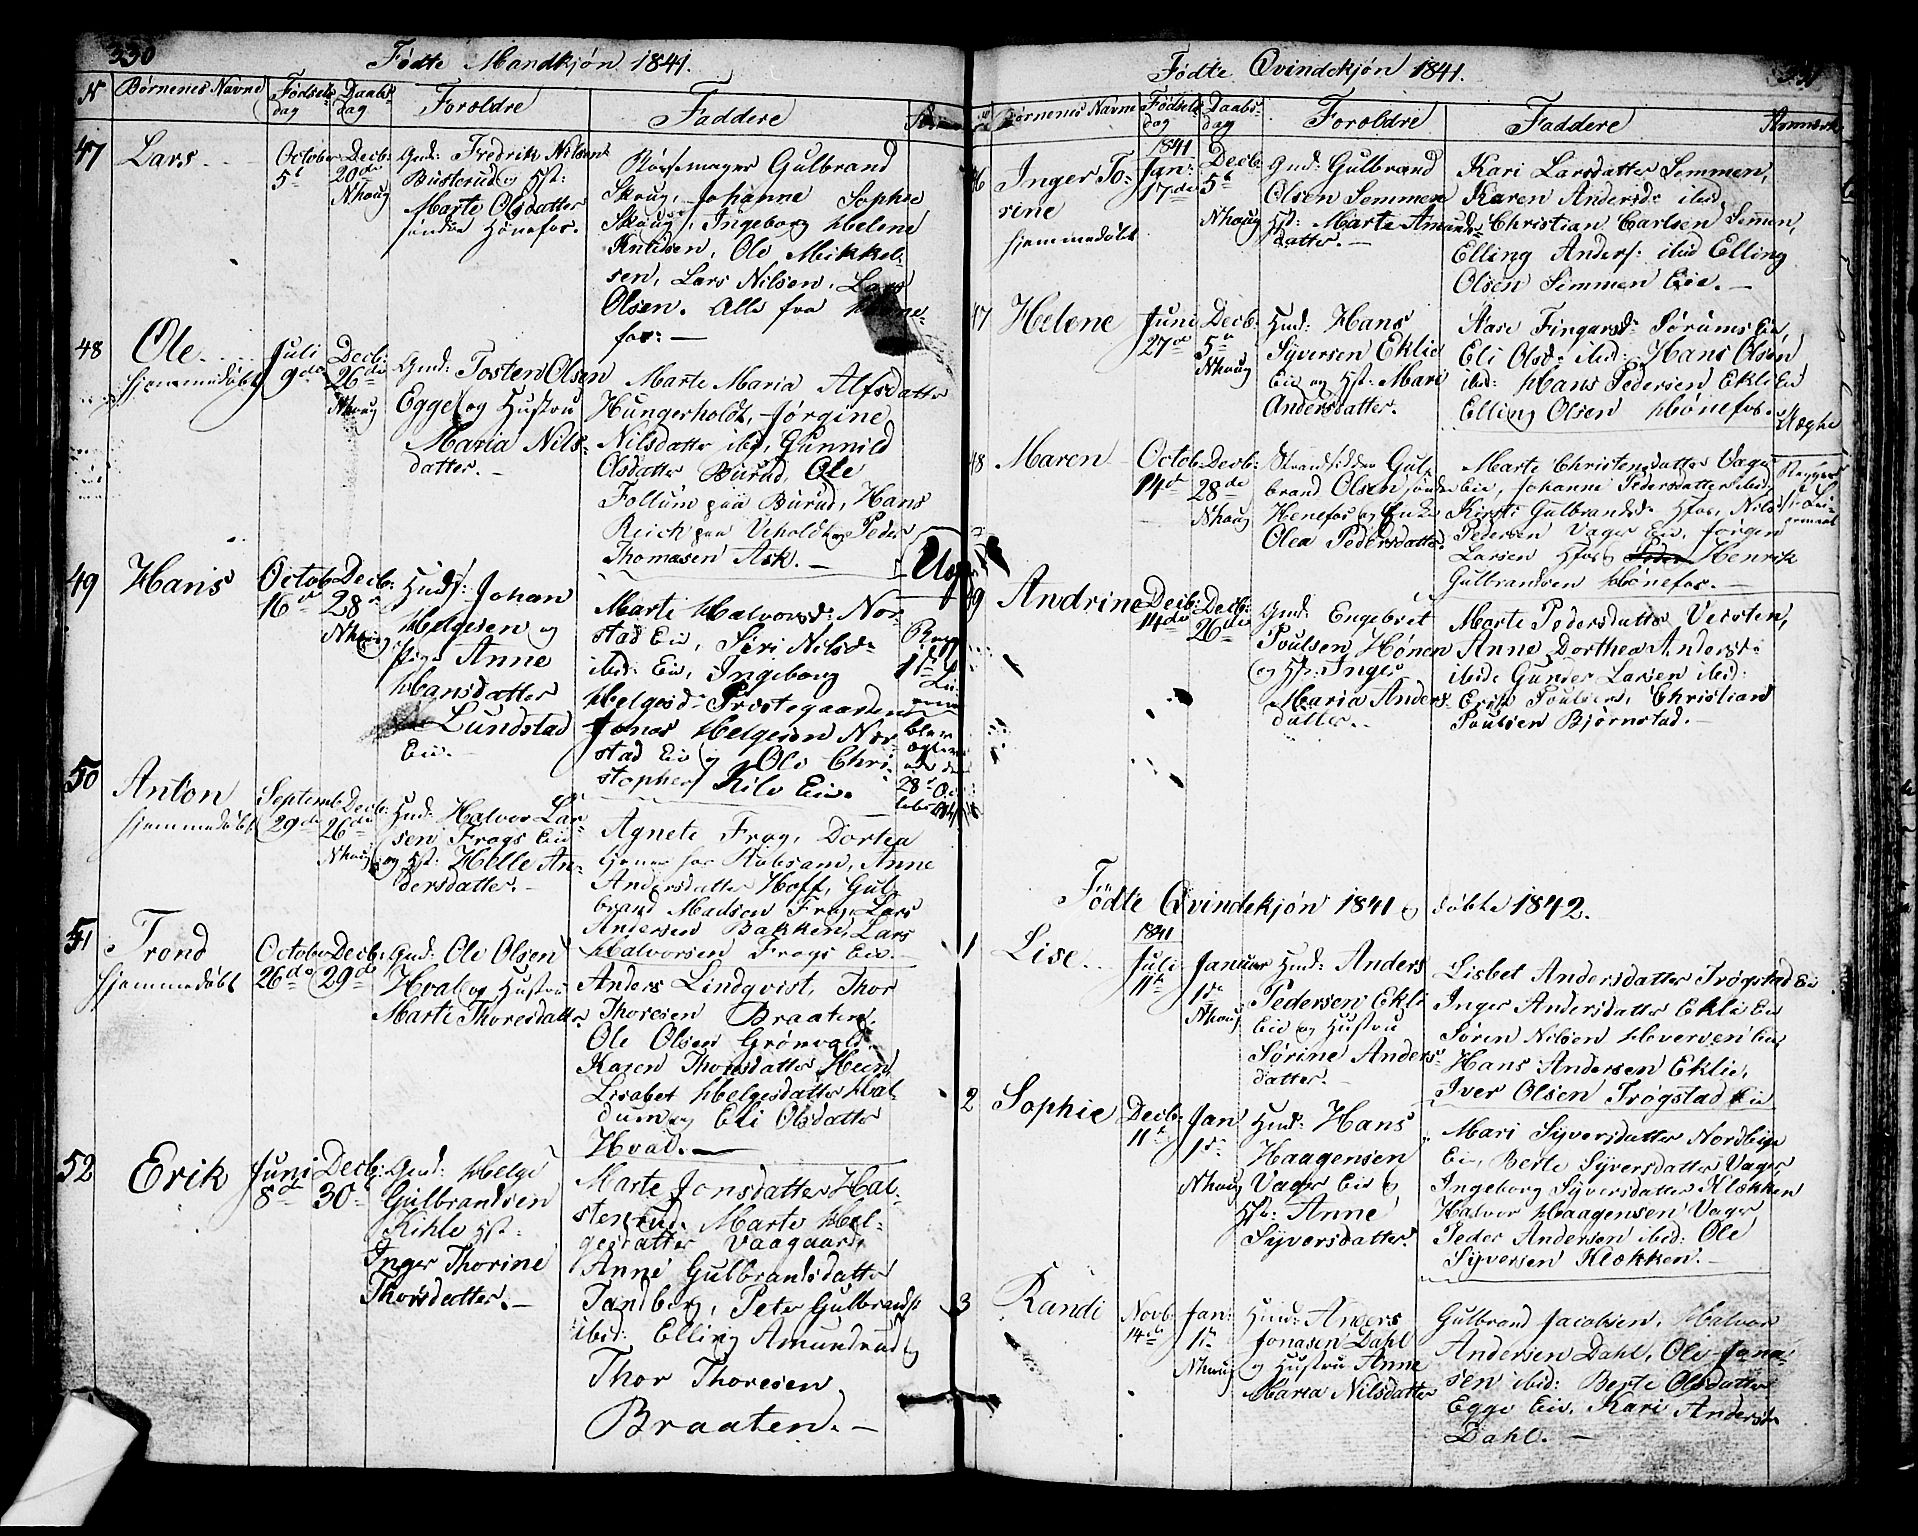 330
Fødte Mandkjøn 1841.
N Børnenes Navne Fødsels dag Daabs dag Foroldre Faddere
47 Lars October 5t Decb: 20de Nhoug
Gmd: Fredrik Nilsen
Busterud og Hst:
Marte Olsdatter
søndre Hønefos.
Skoug, Johanne Sophie
Skoug, Ingeborg Helene
Knudsen, Ole Mikkel-
sen, Lars Nilsen, Lars
Olsen. Alle fra Høne-
fos: —
48 Ole hjemmedøbt Juli 9de Decb: 26de Nhoug
Gmd: Tosten Olsen
Egge og Hustru
Maria Nils-
datter. —
Marte Maria Alfsdatter
Hungerholdt, Jørgine
Nilsdatter ibd, Gunnild
Olsdatter Burud, Ole
Follum paa Burud, Hans
Reick paa Veholdt og Peder
Thomasen Ask. —
49 Hans Octob: 16de Decb: 28de Nhoug
Johan
Helgesen og
Pige Anne
Hansdatter
Lundstad
Eie. —
Marte Halvorsd: Nor-
stad Eie, Siri Nilsd:
ibid: Eie, Ingeborg
Helgesd: Præstegaarden
Jonas Helgesen Nor-
stad Eie og Ole Chri-
stophers Kile Eie.
Uæg
50 Anton hjemmedøbt Septemb: 29de Decb: 26de Nhoug
Hmd: Halvor Lar-
sen Frogs Eie
og Hst: Helle An-
dersdatter. —
Agnete Frog, Dortea
Andersdatter Hoff, Gul-
brand Madsen Frog, Lars
Andersen Bakken, Lars
Halvorsen Frogs Eie. —
51 Trond hjemmedøbt October 26de Decb: 29de
Gmd: Ole Olsen
Hval og Hustru
Marte Thoresdatter
Anders Lindqvist, Thor
Thoresen Braaten,
Ole Olsen Grønvold,
Karen Thorsdatter Heen,
Lisabet Helgesdatter Hval-
dum og Eli Olsdatter
Hval. —
52 Erik Juni 8de Decb: 30te
Gmd: Helge
Gulbrandsen
Kihle Hst:
Inger Thorine
Thorsdatter. —
Marte Jonsdatter Hal-
sterud. Marte Hel-
gesdatter Vaagaard,
Anne Gulbrandsdatter
Tandberg, Peter Gulbrands:
ibid: Elling Amundrud og
Thor Thoresen
Braaten. —
Fødte Qvindekjøn 1841.
Børnenes Navne Fødsels dag Daabs dag Foroldre Faddere Anmærk
Inger To-
rine
hjemmedøbt
1841 Jan: 17de Decb: 5te Nhoug
Gmd: Gulbrand
Olsen Semmen
Hst: Marte Amunds-
datter. —
Kari Larsdatter Semmen,
Karen Andersd: ibid,
Christian Carlsen Semmen,
Elling Anders: ibid Elling
Olsen Simmen Eie. —
Helene Juni 27de Decb: 5te Nhoug
Hmd: Hans
Syversen Eklie
Eie og Hst: Mari
Andersdatter.
Aase Fingarsd: Sørums Eie,
Eli Olsd: ibid: Hans Olsen
ibd: Hans Pedersen Ekli Eie
Elling Olsen Hønefos.
Maren Octob: 14de Decb: 28de Nhoug
Strandsidder Gul-
brand Olsen søndre
Hønefos og
Olea Pedersdatter.
Marte Christensdatter Vager
Eie, Johanne Pedersdatter ibid,
Kirsti Gulbrandsd: Hfos, Nils
Pedersen Vager Eie, Jørgen
Larsen Hfos, Henrik
Gulbrandsen Hønefos. —
Andrine Decb: 14de Decb: 26de
Gmd: Engebret
Poulsen Hønen
og Hst: Inger
Maria Anders-
datter. —
Marte Pedersdatter Versten,
Anne Dorthea Andersd:
ibid: Gunder Larsen ibid:
Erik Poulsen, Christian
Poulsen Bjørnstad. —
Fødte Qvindekjøn 1841 og døbte 1842.
1 Lise 1841 Juli 11te Januar 1ste Nhoug
Hmd: Anders
Pedersen Ekli
Eie og Hustru
Sørine Anders-
datter. —
Lisbet Andersdatter Trøgstad Eie
Inger Andersdatter Ekli Eie
Søren Nilsen Hverven Eie
Hans Andersen Eklie,
Iver Olsen Trøgstad Eie
2 Sophie Decb: 11te Jan 1ste Nhoug
Hmd: Hans
Haagensen
Vager Eie og
Hst: Anne
Syversdatter.
Mari Syversdatter Nordbye
Eie, Berte Syversdatter Vager
Ingeborg Syversdatter Klækken
Halvor Haagensen Vager
Peder Andersen ibid: Ole
Syversen Klækken. —
3 Randi Novb: 14de Jan: 1ste Nhoug
Hmd: Anders
Jonasen Dahl
og Hustru Anne
Maria Nilsdatter
Gulbrand Jacobsen, Halvor
Andersen Dahl, Ole Jona-
sen ibid: Berte Olsdatter
Egge Eie, Kari Andersd:
Dahl. —